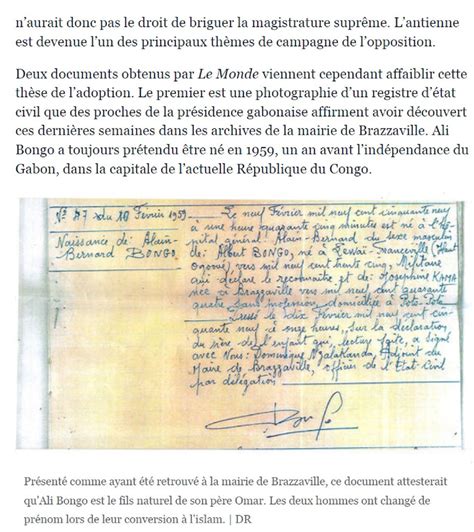 n'aurait donc pas le droit de briguer la magistrature suprême. L'antienne
est devenue l'un des principaux thèmes de campagne de l'opposition.
Deux documents obtenus par Le Monde viennent cependant affaiblir cette
thèse de l'adoption. Le premier est une photographie d'un registre d'état
civil que des proches de la présidence gabonaise affirment avoir découvert
ces dernières semaines dans les archives de la mairie de Brazzaville. Ali
Bongo a toujours prétendu être né en 1959, un an avant l'indépendance du
Gabon, dans la capitale de l'actuelle République du Congo.
N° 47 du 10 Février 1959
Naissance de: Alain-
Bernard BONGO
Le neuf Février mil neuf cent cinquante neuf
à une heure quarante cinq minutes est né à l'Hô-
pital général: Alain-Bernard du sexe masculin
de: Albert BONGO, né à Lewai-Franceville (Haut
Ogooué) vers mil neuf cent trente cinq, Militaire
qui déclare le reconnaître et de: Joséphine KAMA
née à Brazzaville vers mil neuf cent quarante
quatre sans profession, domiciliée à Poto-Poto
Dressé le dix Février mil neuf cent cin-
quante neuf à onze heures, sur la déclaration
du père de l'enfant qui, lecture faite, a signé
avec Nous: Dominique Nzalakanda, Adjoint du
Maire de Brazzaville, officier de l'Etat Civil
par délégation
Présenté comme ayant été retrouvé à la mairie de Brazzaville, ce document attesterait
qu'Ali Bongo est le fils naturel de son père Omar. Les deux hommes ont changé de
prénom lors de leur conversion à l'islam. | DR